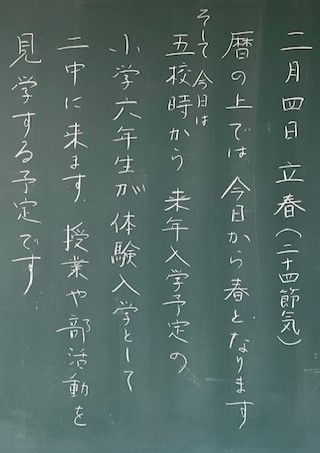 二月四日 立春(二十四節気)
暦の上では 今日から春となります
そして 今日は
五校時から 来年入学予定の
小学六年生が 体験入学として
二中に来ます 授業や部活動を
見学する予定です